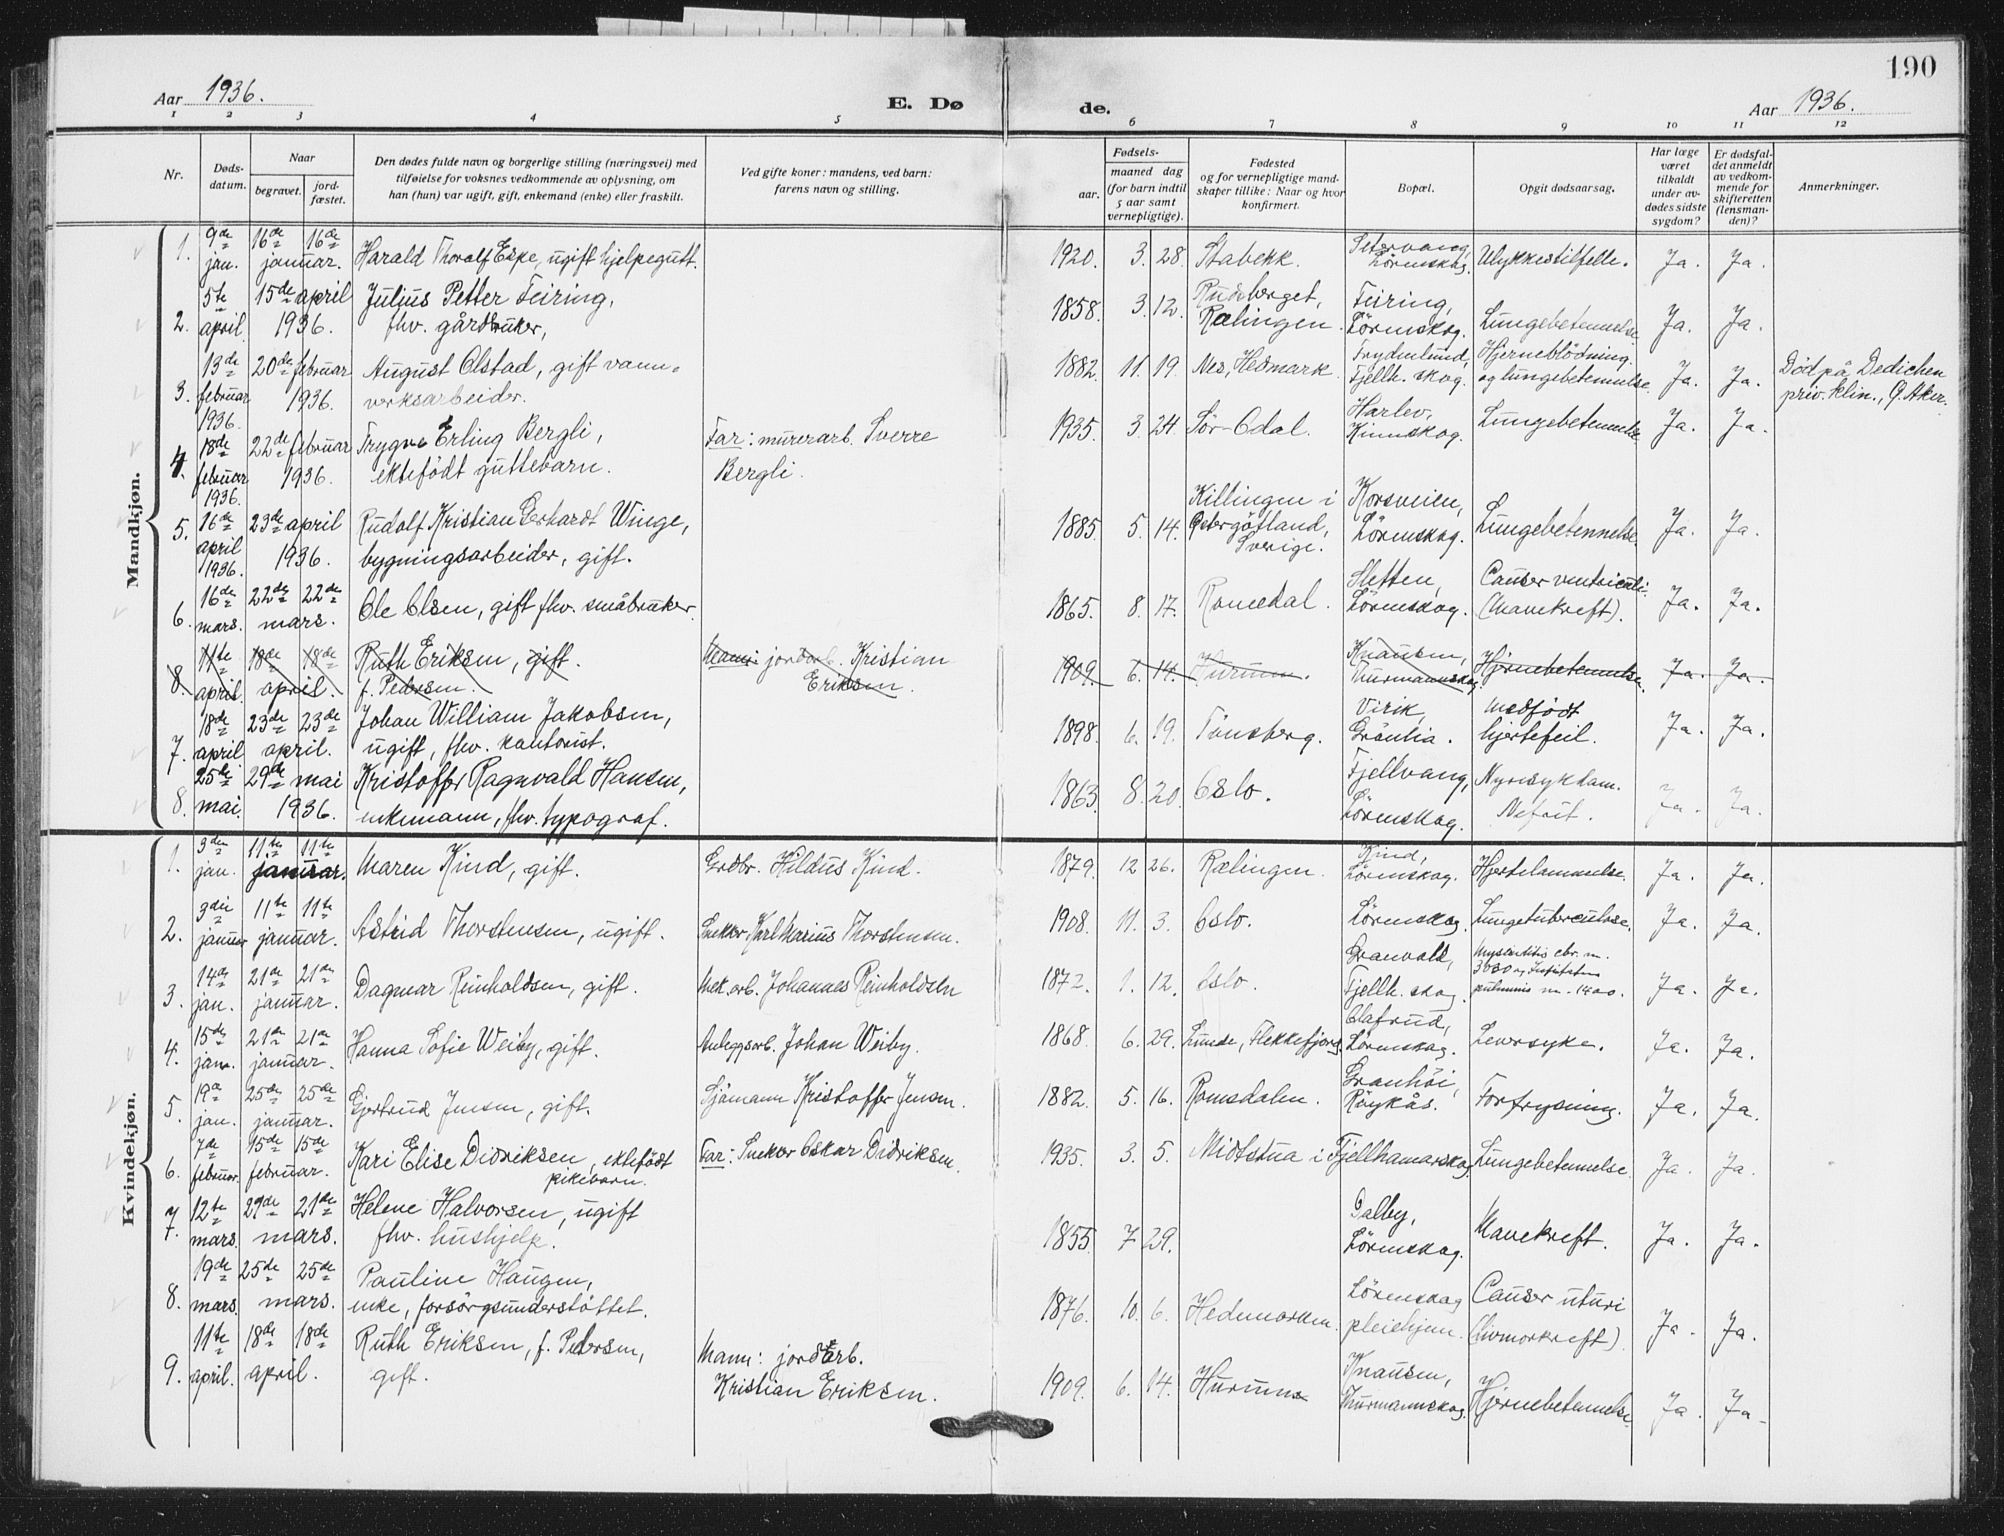 190
Aar 1936. E. Dø de. Aar 1936.
1 2 3 4 5 6 7 8 9 10 11 12
Nr. Døds-datum. Naar begravet. jord-fæstet. Den dødes fulde navn og borgerlige stilling (næringsvei) med tilføielse for voksnes vedkommende av oplysning, om han (hun) var ugift, gift, enkemand (enke) eller fraskilt. Ved gifte koner: mandens, ved barn: farens navn og stilling. Fødsels- aar. maaned dag (for barn indtil 5 aar samt vernepligtige). Fødested og for vernepligtige mand-skaper tillike: Naar og hvor konfirmert. Bopæl. Opgit dødsaarsag. Har læge været tilkaldt under av-dødes sidste sygdom? Er dødsfal-det anmeldt av vedkom-mende for skifteretten (lensman-den)? Anmerkninger.
Mandkjøn.
1. 9de jan. 16de 16de januar. Harald Thoralf Espe, ugift hjelpegutt. 1920. 3. 28. Stabekk. Setervang, Lörenskog. Ulykkestilfelle. Ja. Ja.
2. 5te april 15de april 1936. Julius Petter Feiring, fhv. gårdbruker, 1858. 3. 12. Rudsberget, Rælingen. Feiring, Lörenskog. Lungebetennelse Ja. Ja.
3. 13de februar 1936. 20de februar 1936. August Olstad, gift vann-verksarbeider. 1882. 11. 19. Nes, Hedmark. Frydenlund, Fjellh. skog. Hjerneblödning. og lungebetennelse. Ja. Ja. Död på Dedichen priv. klin., Ö. Aker.
4. 18de februar 1936. 22de februar 1936. Trygve Erling Bergli, ektefödt guttebarn. Far: murerarb. Sverre Bergli. 1935. 3. 24. Sör-Odal. Harlev, Kinnskog. Lungebetennelse Ja. Ja.
5. 16de april 1936. 23de april 1936. Rudolf Kristian Gerhardt Winge, bygningsarbeider, gift. 1885. 5. 14. Killingen i Östergötland, Sverige. Korsveien, Lörenskog. Lungebetennelse. Ja. Ja.
6. 16de mars. 22de 22de mars. Ole Olsen, gift fhv. småbruker. 1865. 8. 17. Romedal. Sletten, Lörenskog. Cancer ventriculi. (Mavekreft). Ja. Ja.
8. 11te april. 18de 18de april. Ruth Eriksen, gift. f. Pedersen. Mann: jordarb. Kristian Eriksen. 1909. 6. 14. Hurum. Knausen, Thurmannskog. Hjernebetennelse. Ja. Ja.
7. 18de april 23de 23de april. Johan William Jakobsen, ugift, fhv. kontorist. 1898. 6. 19. Tönsberg. Virik, Grönlia. Medfödt hjertefeil. Ja. Ja.
8. 25de mai. 29de mai 1936. Kristoffer Ragnvald Hansen, enkemann, fhv. typograf. 1863. 8. 20. Oslo. Fjellvang, Lörenskog. Nyresykdom. Nefrit. Ja. Ja.
Kvindekjøn.
1. 3den jan. 11te 11te januar. Maren Kind, gift. Grdbr. Hildus Kind. 1879. 12 26. Rælingen. Kind, Lörenskog. Hjertelammelse. Ja. Ja.
2. 3die januar 11te 11te januar. Astrid Thorstensen, ugift. Snekker Karl Marius Thorstensen. 1908. 11. 3. Oslo. Lörenskog. Lungetuberculose. Ja. Ja.
3. 14de jan. 21de 21de januar. Dagmar Reinholdsen, gift. Mek.arb. Johannes Reinholdsen 1872. 1. 12. Oslo. Granvold, Fjellh. skog. 3030 og pulmonis Ja. Ja.
4. 15de jan. 21de 21de januar. Hanna Sofie Weiby, gift. Anleggsarb. Johan Weiby. 1868. 6. 29. Lunde, Flekkefjord. Olafrud, Lörenskog. Leversyke. Ja. Ja.
5. 19de jan. 25de 25de januar. Gjertrud Jensen, gift. Sjömann Kristoffer Jensen. 1882. 5. 16. Romsdalen. Granhöi, Röykås. Forfrysning. Ja. Ja.
6. 7de februar. 15de 15de februar. Kari Elise Didriksen, ektefödt pikebarn. Far: Snekker Oskar Didriksen. 1935. 3. 5. Midtstua i Fjellhamarskog Lungebetennelse Ja. Ja.
7. 12te mars. 29de 21de mars. Helene Halvorsen, ugift fhv. hushjelp. 1855. 7 29. Dalby, Lörenskog. Mavekreft. Ja. Ja.
8. 19de mars. 25de 25de mars. Pauline Haugen, enke, forsörgsunderstöttet. 1876. 10. 6. Hedemarken. Lörenskog pleiehjem. Cancer uturi (livmorkreft). Ja. Ja.
9. 11te april. 18de 18de april. Ruth Eriksen, f. Pedersen, gift. Mann: jordarb. Kristian Eriksen. 1909. 6. 14. Hurum Knausen, Thurmannskog. Hjernebetennelse. Ja. Ja.